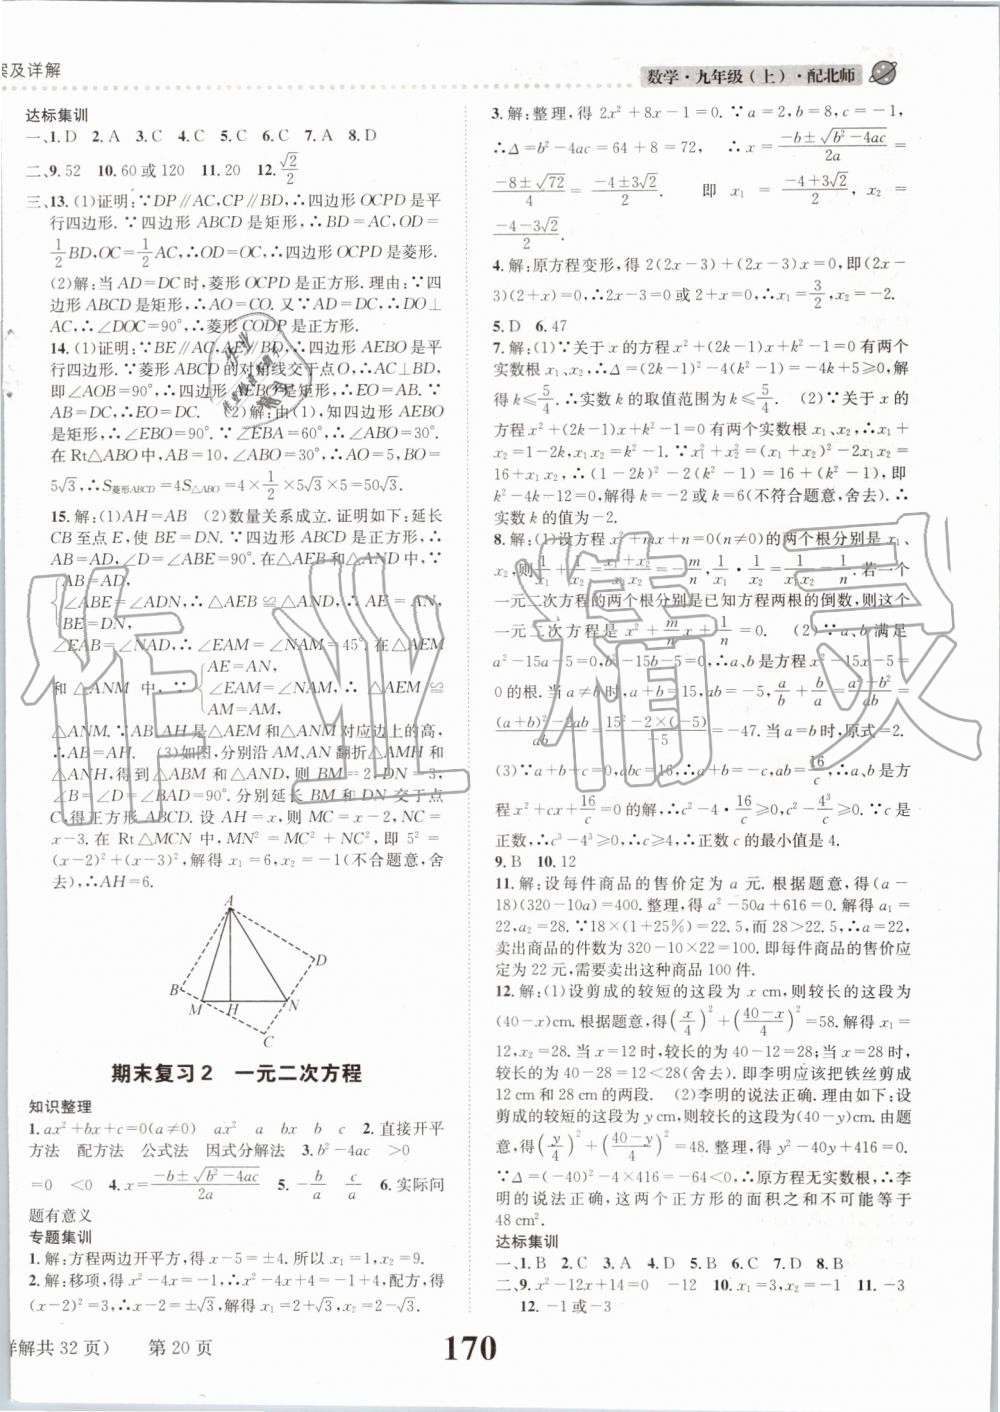 案及详解
数学·九年级（上）·配北师
达标集训
一、1. D　2. A　3. C　4. C　5. C　6. C　7. A　8. D
二、9. 52　10. 60 或 120　11. 20　12. √2/2
三、13. (1)证明：∵DP∥AC,CP∥BD,∴四边形 OCPD 是平
行四边形. ∵四边形 ABCD 是矩形，∴BD=AC,OD=
1/2BD,OC=1/2AC,∴OD=OC,∴四边形 OCPD 是菱形.
(2)解：当 AD=DC 时，菱形 OCPD 是正方形. 理由：∵四
边形 ABCD 是矩形，∴AO=CO. 又∵AD=DC,∴DO⊥
AC,∴∠DOC=90°,∴菱形 CODP 是正方形.
14. (1)证明：∵BE∥AC,AE∥BD,∴四边形 AEBO 是平
行四边形. ∵菱形 ABCD 的对角线交于点 O,∴AC⊥BD,
即∠AOB=90°,∴四边形 AEBO 是矩形. ∴四边形
ABCD=AC·　(2)解：由(1),知四边形 AEBO
是矩形，∴∠EBO=90°. ∵∠EBA=60°,∴∠ABO=30°.
在 Rt△ABO 中，∵∠ABO=30°,∴AO=5,BO=
5√3,∴S菱形ABCD=4S△ABO=4×1/2×5√3×5=50√3.
15. 解：(1)AH=AB　(2)数量关系成立. 证明如下：延长
CB 至点 E,使 BE=DN. ∵四边形 ABCD 是正方形，
∴AB=AD,∠D=∠ABE=90°. 在△AEB 和△AND 中，
∵{AB=AD,
∠ABE=∠ADN, ∴△AEB≌△AND, ∴AE=AN,
BE=DN,
∠EAB=∠NAD,∴∠EAM=∠NAM=45°. 在△AEM
AE=AN,
和△ANM 中，∵{∠EAM=∠NAM,∴△AEM≌
AM=AM,
△ANM. ∵AB、AH 是△AEM 和△ANM 对应边上的高，
∴AB=AH.　(3)如图，分别沿 AM、AN 翻折△AMH 和
△ANH，得到△ABM 和△AND，则 BM=2,DN=3,
∠B=∠D=∠BAD=90°. 分别延长 BM 和 DN 交于点
C,得正方形 ABCD. 设 AH=x，则 MC=x−2,NC=
x−3. 在 Rt△MCN 中，MN²=MC²+NC²，即 5²=
(x−2)²+(x−3)²，解得 x₁=6,x₂=−1(不合题意，舍
去)，∴AH=6.
A
D
B
M
H
N
C
期末复习 2　一元二次方程
知识整理
1. ax²+bx+c=0(a≠0)　ax²　a　bx　b　c　2. 直接开平
方法　配方法　公式法　因式分解法　3. b²−4ac　>0
=0　<0　4. x=(−b±√(b²−4ac))/2a　5. −b/a　c/a　6. 实际问
题有意义
专题集训
1. 解：方程两边开平方，得 x−5=±4. 所以 x₁=1,x₂=9.
2. 解：移项，得 x²−4x=−1,∴x²−4x+4=−1+4,配方，得
(x−2)²=3,∴x−2=±√3,解得 x₁=2+√3,x₂=2−√3.
3. 解：整理，得 2x²+8x−1=0. ∵a=2,b=8,c=−1,
∴Δ=b²−4ac=64+8=72,　∴x=(−b±√(b²−4ac))/2a=
(−8±√72)/4=(−4±3√2)/2.　即　x₁=(−4+3√2)/2,x₂=
(−4−3√2)/2.
4. 解：原方程变形，得 2(2x−3)+(2x−3)x=0,即(2x−
3)(2+x)=0,∴2x−3=0 或 2+x=0,∴x₁=3/2,x₂=−2.
5. D　6. 47
7. 解：(1)∵关于 x 的方程 x²+(2k−1)x+k²−1=0 有两个
实数根 x₁、x₂,∴Δ=(2k−1)²−4(k²−1)=−4k+5≥0,解
得 k≤5/4. ∴实数 k 的取值范围为 k≤5/4.　(2)∵关于 x 的
方程 x²+(2k−1)x+k²−1=0 有两个实数根 x₁、x₂,∴x₁+
x₂=1−2k,x₁x₂=k²−1. ∵x₁²+x₂²=(x₁+x₂)²−2x₁x₂=
16+x₁x₂,∴(1−2k)²−2(k²−1)=16+(k²−1),即
k²−4k−12=0,解得 k=−2 或 k=6(不符合题意，舍去). ∴
实数 k 的值为−2.
8. 解：(1)设方程 x²+mx+n=0(n≠0)的两个根分别是 x₁、
x₂,则 1/x₁+1/x₂=(x₁+x₂)/x₁x₂=−m/n,1/x₁·1/x₂=1/x₁x₂=1/n. 若一个
一元二次方程的两个根分别是已知方程两根的倒数，则这个
一元二次方程是 x²+m/n x+1/n=0.　(2)∵a、b 满足
a²−15a−5=0,b²−15b−5=0,∴a、b 是方程 x²−15x−5=0
的根. 当 a≠b 时，a+b=15,ab=−5,a/b+b/a=(a²+b²)/ab=
((a+b)²−2ab)/ab=(15²−2×(−5))/−5=−47. 当 a=b 时，原式=2.
(3)∵a+b+c=0,abc=16,∴a+b=−c,ab=16/c,∴a、b 是方
程 x²+cx+16/c=0 的解，∴c²−4·16/c≥0,c²−4³/c≥0. ∵c 是
正数，∴c³−4³≥0,∴c≥4,∴正数 c 的最小值是 4.
9. B　10. 12
11. 解：设每件商品的售价定为 a 元. 根据题意，得(a−
18)(320−10a)=400. 整理，得 a²−50a+616=0. 解得 a₁=
22,a₂=28. ∵18×(1+25%)=22.5,而 28>22.5,∴a=22,
卖出商品的件数为 320−10×22=100. 即每件商品的售价应
定为 22 元，需要卖出这种商品 100 件.
12. 解：(1)设剪成的较短的这段为 x cm,则较长的这段为
(40−x)cm. 根据题意，得(x/4)²+((40−x)/4)²=58. 解得 x₁=
12,x₂=28. 当 x=12 时，较长的为 40−12=28(cm);当 x=28
时，较长的为 40−28=12<28(舍去). 即李明应该把铁丝剪成
12 cm 和 28 cm 的两段.　(2)李明的说法正确. 理由如下：设
剪成的较短的这段为 y cm,则较长的这段为(40−y)cm. 由题
意，得(y/4)²+((40−y)/4)²=48. 整理，得 y²−40y+416=0.
∵Δ=(−40)²−4×416=−64<0,∴原方程无实数根，∴李
明的说法正确，这两个正方形的面积之和不可能等于
48 cm².
达标集训
一、1. B　2. C　3. A　4. D　5. B　6. B　7. C　8. B
二、9. x²−12x+14=0　−12　10. x₁=3,x₂=−1　11. −3
12. −1 或−3
详解共 32 页）　第 20 页
170
作业精灵